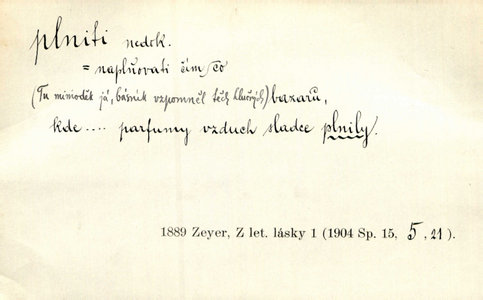 plniti nedok.
= naplňovati čím co
(Tu mimoděk já, básník vzpomněl těch hlučných) bazarů,
kde .... parfumy vzduch sladce plnily.
1889 Zeyer, Z let. lásky 1 (1904 Sp. 15, 5, 21).